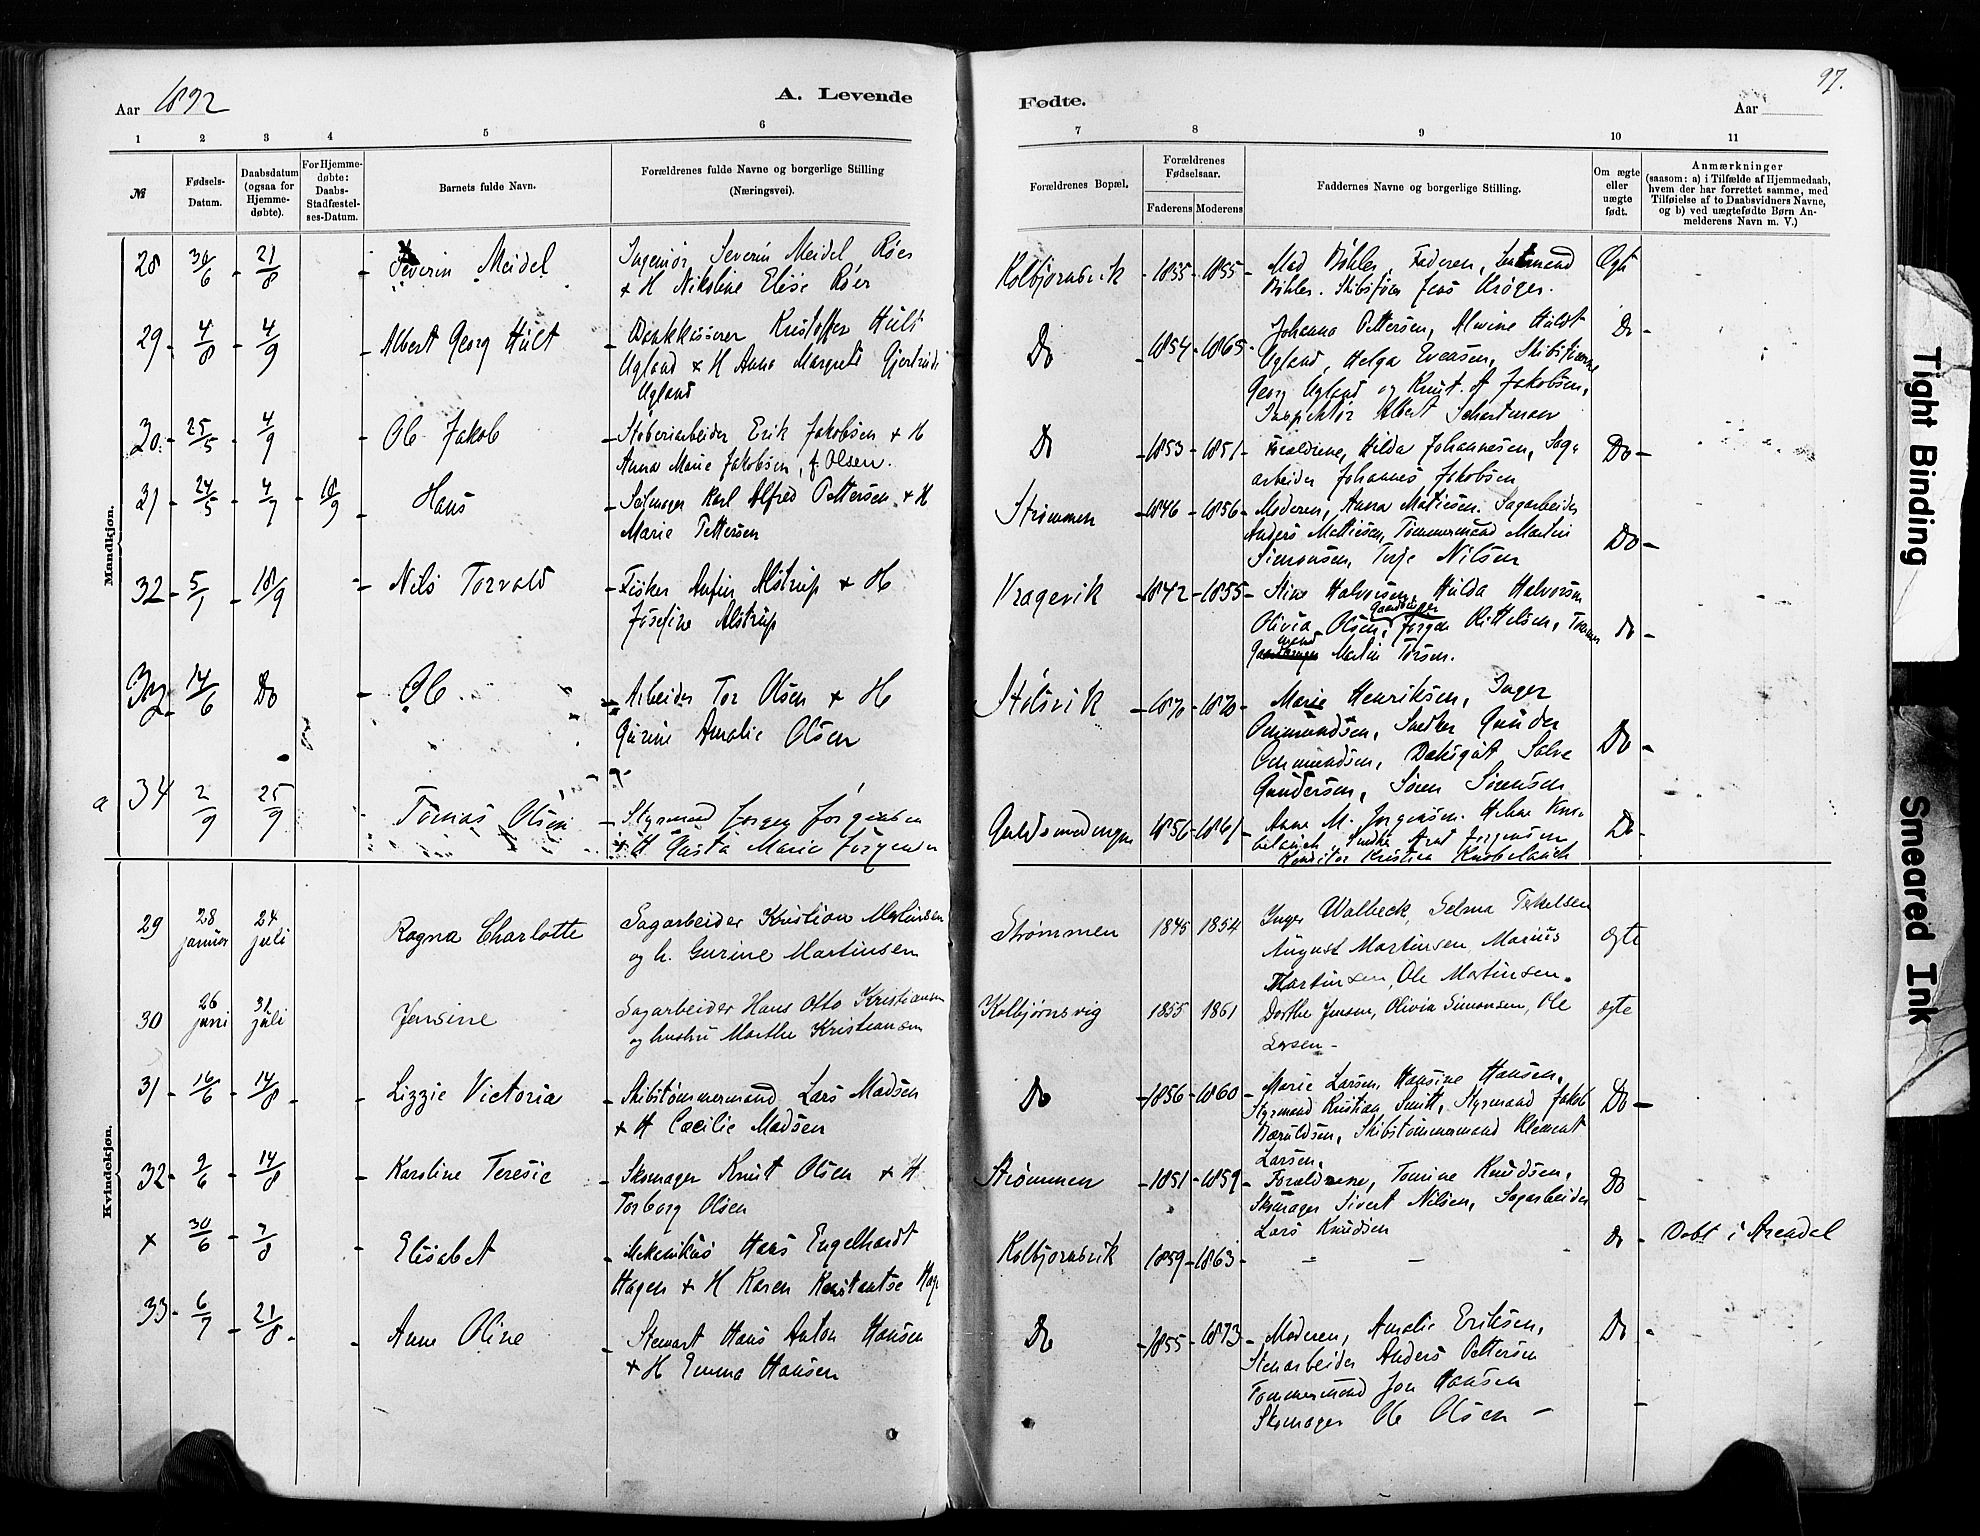 Aar 1892
A. Levende
Fødte.
Aar
97.
1 2 3 4 5 6 7 8 9 10 11
№
Fødsels-Datum.
Daabsdatum (ogsaa for Hjemme-døbte).
For Hjemme-døbte: Daabs-Stadfæstel-ses-Datum.
Barnets fulde Navn.
Forældrenes fulde Navne og borgerlige Stilling (Næringsvei).
Forældrenes Bopæl.
Forældrenes Fødselsaar.
Faderens Moderens
Faddernes Navne og borgerlige Stilling.
Om ægte eller uægte født.
Anmærkninger
(saasom: a) i Tilfælde af Hjemmedaab, hvem der har forrettet samme, med Tilføielse af to Daabsvidners Navne, og b) ved uægtefødte Børn An-melderens Navn m. V.)
Mandkjøn.
28 30/6 21/8 Severin Meidel
Ingeniør Severin Meidel Røer
+ H Nikoline Elise Røer
Kolbjørnsvik 1855 1855
Mad Bøhler, Faderen,
Bøhler. Skibsfører Jens Krøger.
Ægt
29 4/8 4/9 Albert Georg Hült
Kristoffer Hült
Ugland + H Anna Margrete Gjertrude
Ugland
Do 1854 1865
Johanna Pettersen, Alvine Huldt
Ugland, Helga Evensen, Skibsførerne
Georg Ugland og Knut A Jakobsen,
Inspektør Albert
Do
30 25/5 4/9 Ole Jakob
Støberiarbeider Erik Jakobsen + H
Anna Marie Jakobsen, f. Olsen.
Do 1853 1851
Forældrene, Hilda Johannesen, Sag-
arbeider Johannes Jakobsen
Do
31 24/5 4/9 18/9 Hans
Seilmager Karl Alfred Pettersen + H
Marie Pettersen
Strømmen 1846 1856
Moderen, Anna Matiesen. Sagarbeider
Anders Mattiesen, Tømmermand Martin
Simonsen, Terje Nilsen
Do
32 5/7 18/9 Nils Torvald
Fisker Anfin Alstrup + H
Josefine Alstrup
Vragevik 1842 1855
Stine Halvorsen, Hulda Halvorsen
Olivia Olsen, Gaardbruger Jørgen Kittelsen, Tømmer
mand Martin Torsen.
Do
33 14/6 Do Ole
Arbeider Tor Olsen + H
Gurine Amalie Olsen
Stølsvik 1870 1870
Marie Henriksen, Inger
Ommundsen, Snedker Gunder
Ommundsen, Salve
Gundersen, Søren Sørensen
Do
a 34 2/9 25/9 Tomas Olsen
Styrmand Jørgen Jørgensen
+ H Gusta Marie Jørgensen
Guldsmedengen 1856 1861
Anne M. Jørgensen. Helene Kno-
belauch, Snedker Jørgensen
Konditor Kristian Knobelauch
Do
Kvindekjøn.
29 28 januar 24 juli Ragna Charlotte
Sagarbeider Kristian Martinsen
og h. Gurine Martinsen
Strømmen 1845 1854
Inger Walbeck, Selma Terkelsen
August Martinsen Marius
Martinsen, Ole Martinsen.
ægte
30 26 juni 31 juli Jensine
Sagarbeider Hans Otto Kristiansen
og hustru Marthe Kristiansen
Kolbjørnsvig 1855 1861
Dorthe Jensen, Olivia Simonsen, Ole
Larsen
ægte
31 16/6 14/8 Lizzie Victoria
Skibstømmermand Lars Madsen
+ H Cæcilie Madsen
Do 1856 1860
Marie Larsen, Hansine Hansen,
Styrmand Kristian Smitt, Styrmand Jakob
Bæruldsen, Skibstømmermand Klement
Larsen.
Do
32 9/6 14/8 Karoline Teresie
Skomager Knut Olsen + H
Torborg Olsen
Strømmen 1851 1859
Forældrene, Tomine Knudsen,
Skomager Sivert Nilsen, Sagarbeider
Lars Knudsen
Do
+ 30/6 7/8 Elisabet
Mekanikus Hans Engelhardt
Hagen + H Karen Konstantse Hagen
Kolbjørnsvik 1859 1863 - - -
Do Døbt i Arendal
33 6/7 21/8 Anne Oline
Stewart Hans Anton Hansen
+ H Emma Hansen
Do 1855 1873
Moderen, Amalie Eriksen,
Stenarbeider Anders Pettersen
Tømmermand Jon Hansen
Skomager Ole Olsen
Do
Tight Binding
Smeared Ink